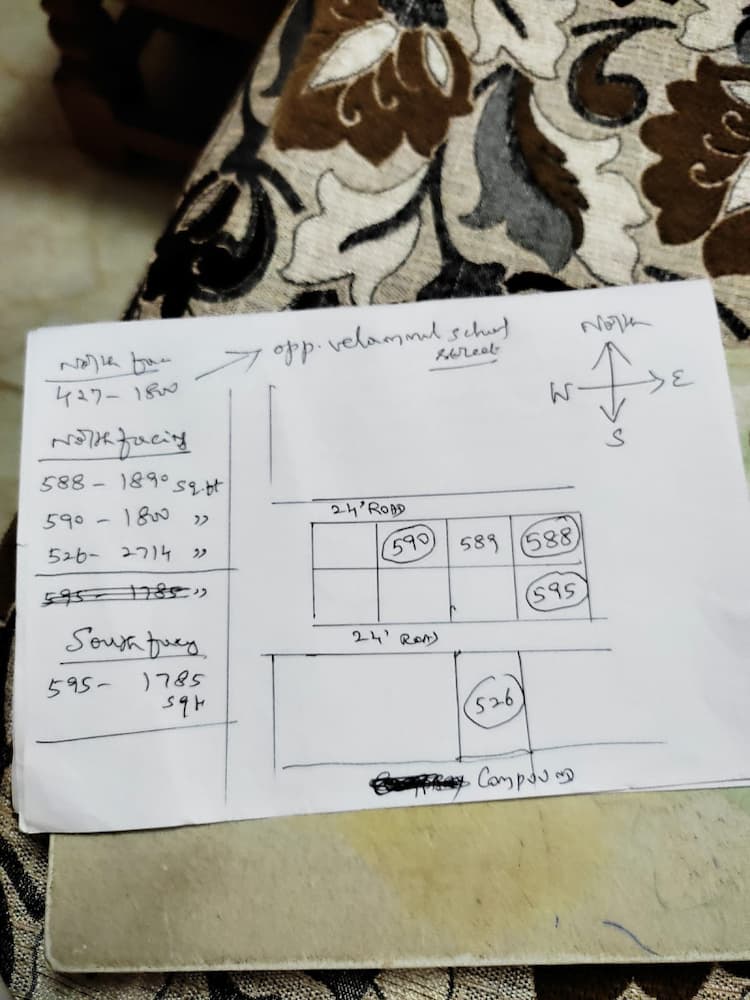 North fac
427 - 1800
opp. velammal school
street
North
W E
S
North facing
588 - 1890 sq.ft
590 - 1800 ,,
526 - 2714 ,,
595 - 1785 ,,
South facing
595 - 1785
sqft
24' ROAD
590 589 588
595
24' ROAD
526
Compound